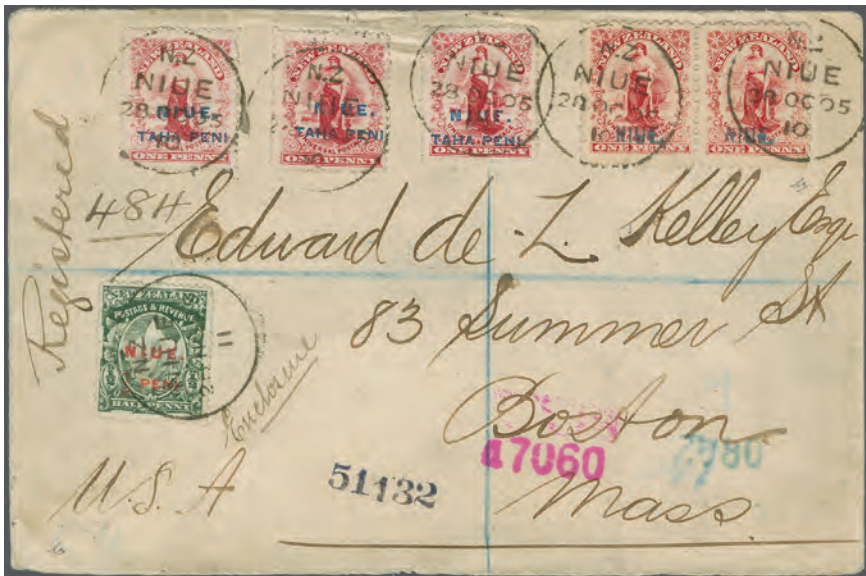 N.Z
NIUE
28 OC 05
10
NEW ZEALAND
NIUE.
TAHA PENI.
ONE PENNY
N.Z
NIUE
NEW ZEALAND
NIUE.
TAHA PENI.
ONE PENNY
NIUE
28 OC 05
NEW ZEALAND
NIUE.
TAHA PENI.
ONE PENNY
N.Z
NIUE
28 OC 05
10
NEW ZEALAND
NIUE.
ONE PENNY
N.Z
NIUE
28 OC 05
10
NEW ZEALAND
NIUE.
ONE PENNY
Registered
484
Edward de L. Kelley Esqr
83 Summer St
NEW ZEALAND
POSTAGE & REVENUE
NIUE.
½ PENI
HALF PENNY
11
Enclosure
Boston
47060
U.S.A
51132
Mass.